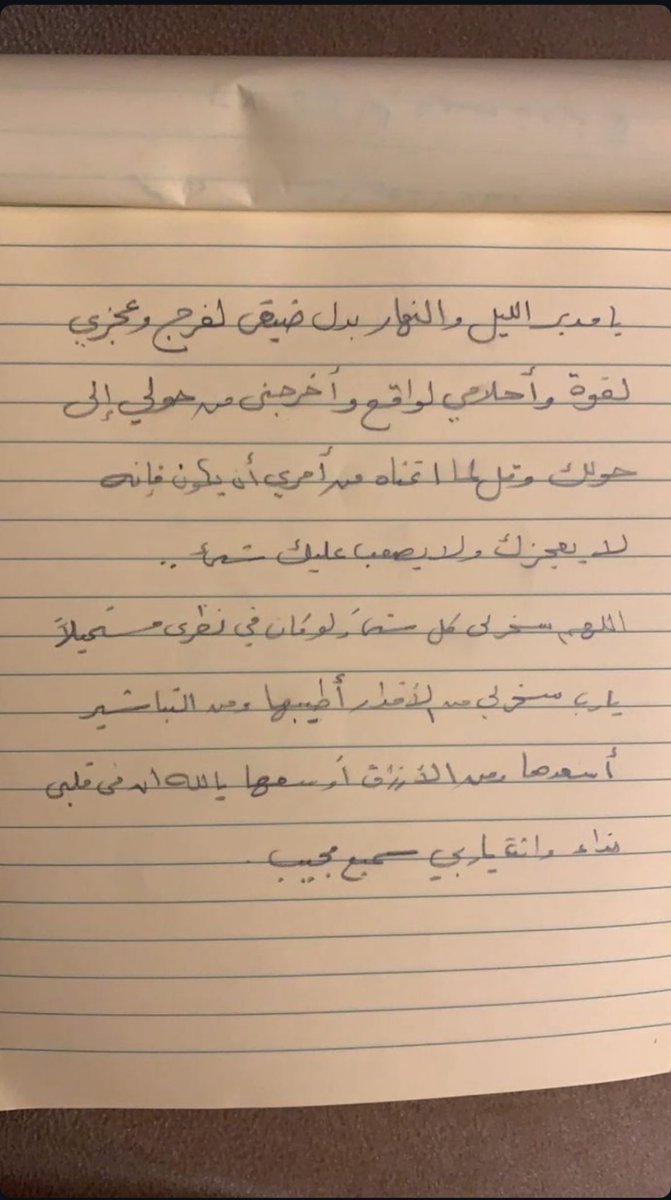 يا مدبر الليل والنهار بدل ضيقي لفرج وعجزي
لقوة وأحلامي لواقع وأخرجني من حولي إلى
حولك وقل لما اتمناه من أمري أن يكون فإنه
لا يعجزك ولا يصعب عليك شيء ..
اللهم سخر لي كل شيء ولو كان في نظري مستحيلاً
يارب سخر لي من الأقدار أطيبها ومن التباشير
أسعدها ومن الأرزاق أوسعها يالله ان في قلبي
نداء وانت ياربي سميع مجيب .